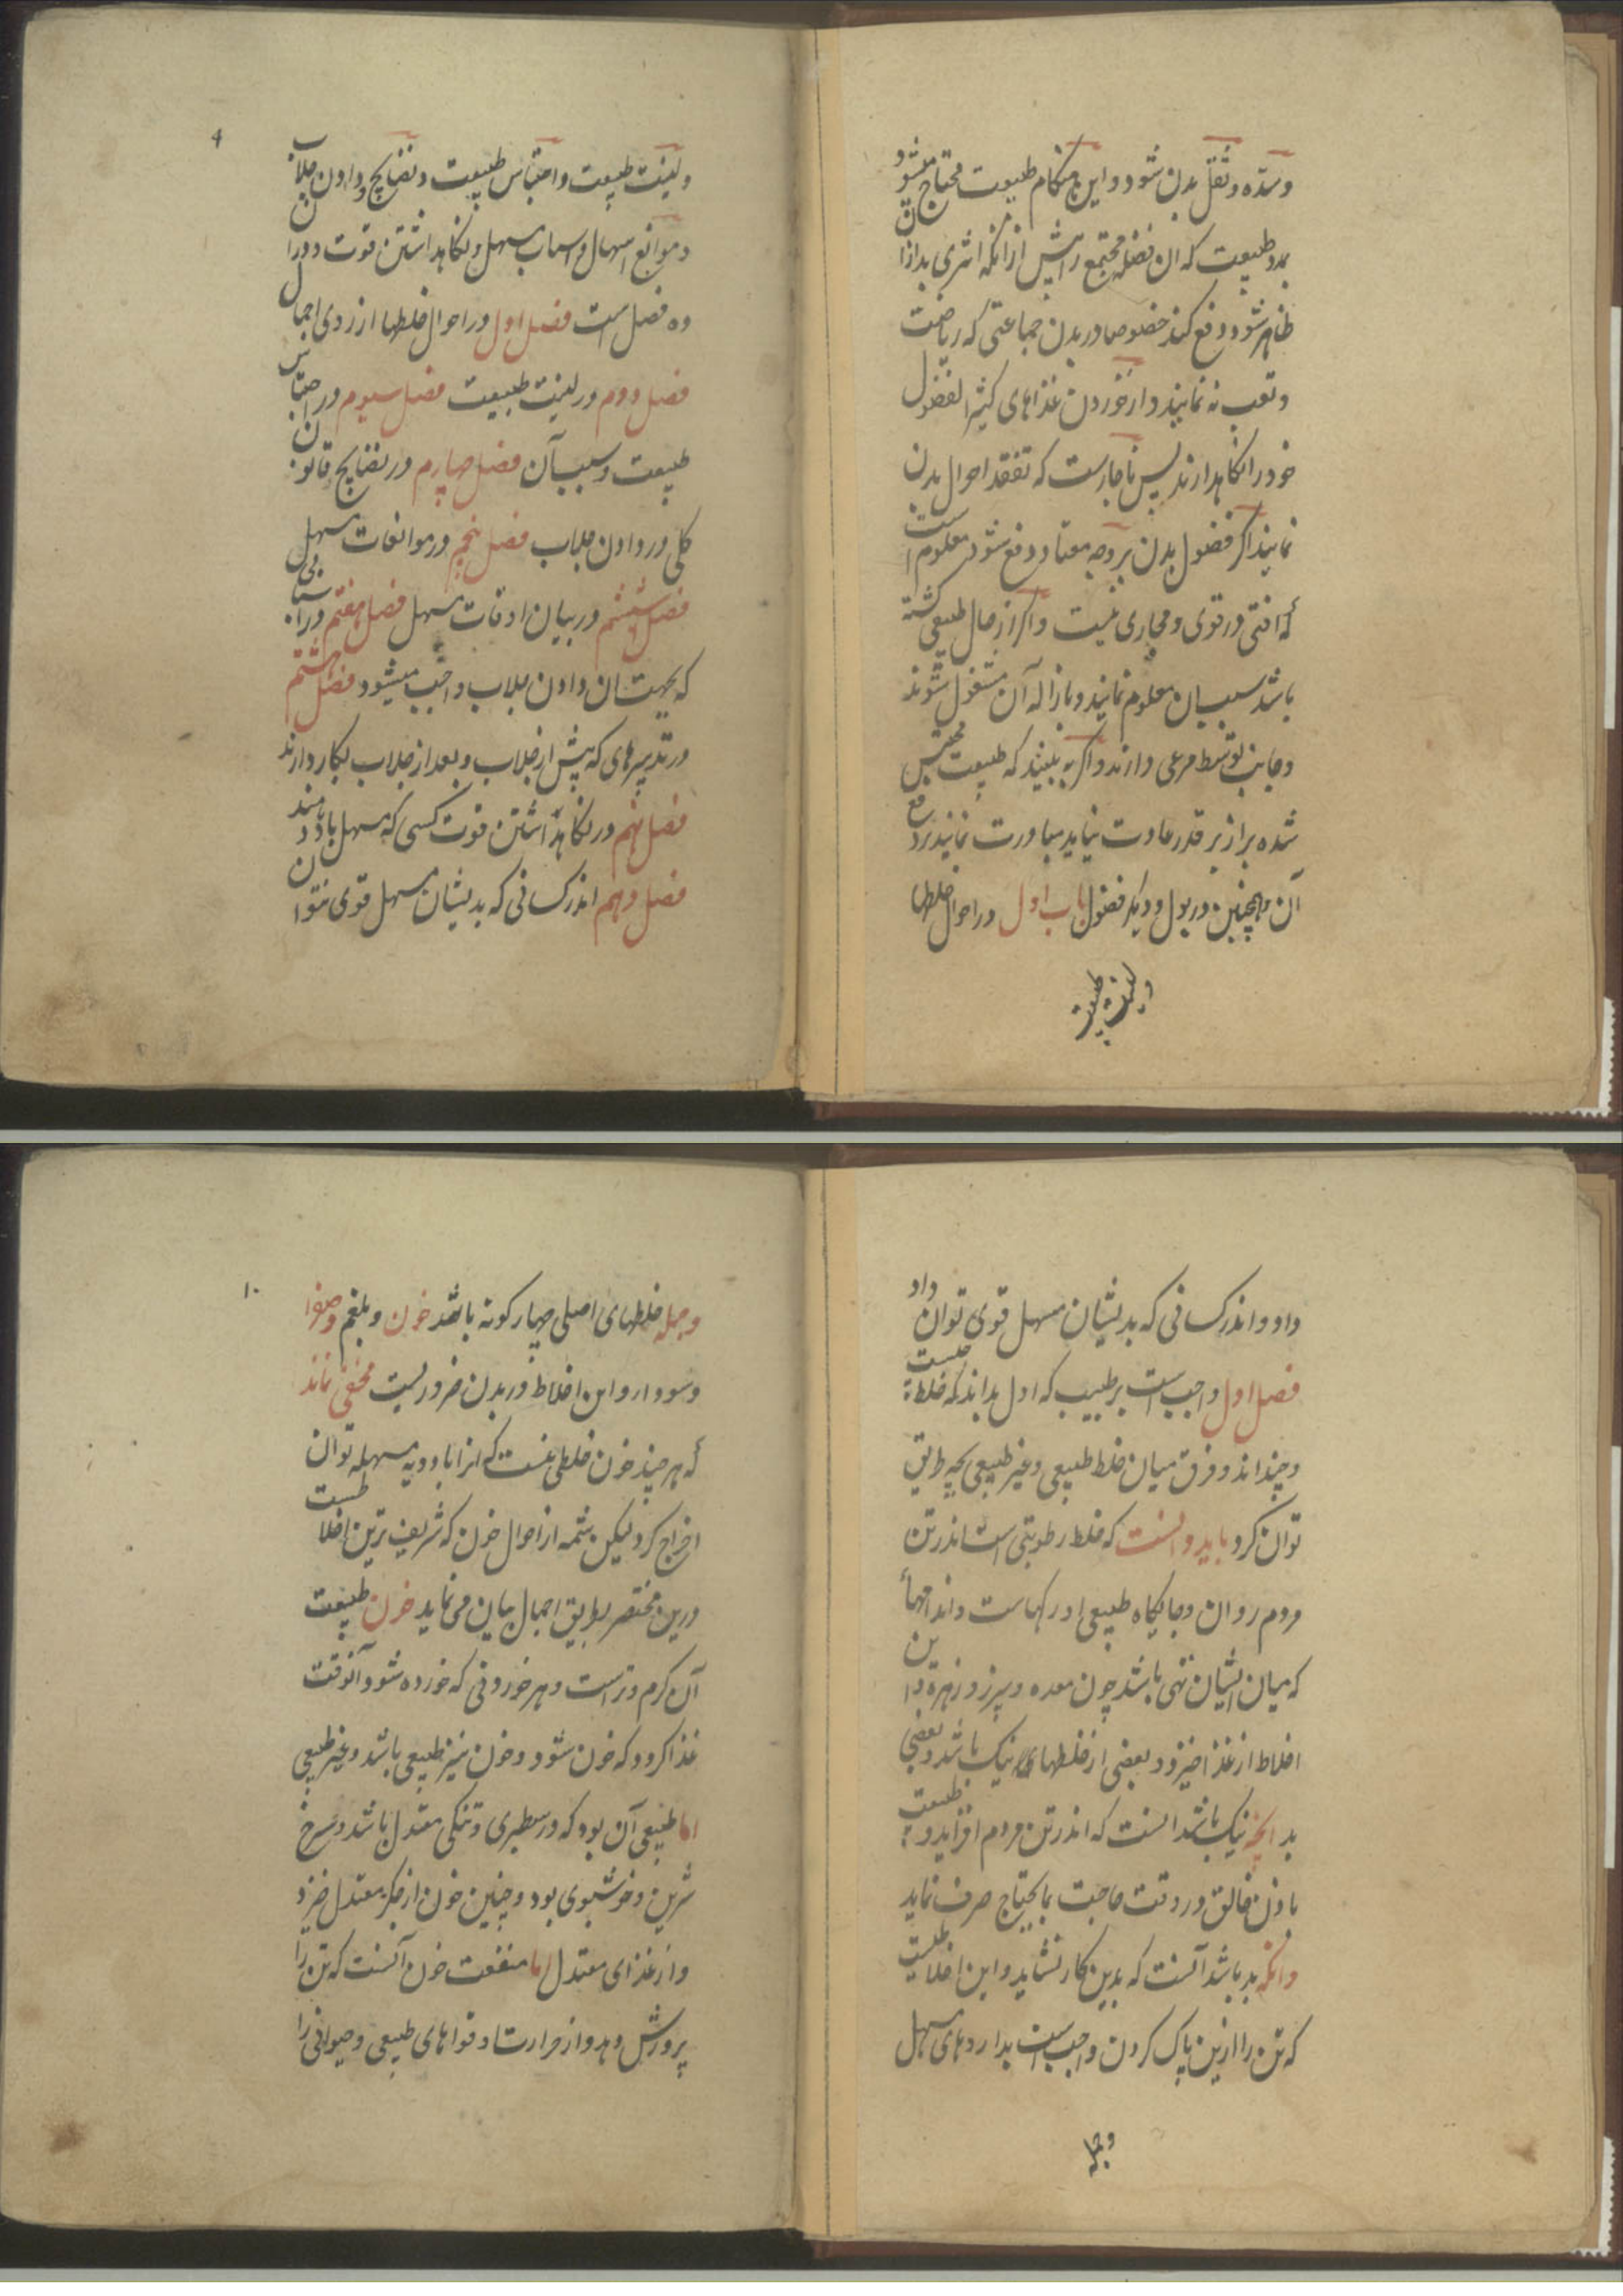 وسده و ثقل بدن شود و این هنکام طبیعت محتاج میشود
بمدد طبیعت که ان فضله مجتمع را پیش از انکه اثری بد ازان
ظاهر شود دفع کند خصوصا در بدن جماعتی که ریاضت
و تعب نه نمایند و از خوردن غذاهای کثیر الفضول
خود را نکاهدارند پس ناچارست که تفقد احوال بدن
نمایند اکر فضول بدن بر وجه معتاد دفع شود معلوم است
که افتی در قوی و مجاری نیست و اکر از حال طبیعی کشته
باشد سبب ان معلوم نمایند و بازاله آن مشغول شوند
و جانب توسط مرعی دارند و اکر به بینند که طبیعت محتبس
شده براز بر قدر عادت نیاید مبادرت نمایند بر دفع
آن و همچنین در بول و دیکر فضول باب اول در احوال خلطها
و لینت طبیعت
4
و لینت طبیعت و احتباس طبیعت و نضایج و دادن جلاب
و موانع اسهال و اسباب مسهل و نکاهداشتن قوت و دران
ده فصل است فصل اول در احوال خلطها از روی اجمال
فصل دوم در لینت طبیعت فصل سیوم در احتباس
طبیعت و سبب آن فصل چهارم در نضایج قانون
کلی در دادن جلاب فصل پنجم در موانعات مسهل
فصل ششم در بیان اوقات مسهل فصل هفتم در اسبابی
که بجهت ان دادن جلاب واجب میشود فصل هشتم
در تدبیرهای که پیش از جلاب و بعد از جلاب بکار دارند
فصل نهم در نکاهداشتن قوت کسی که مسهل بدو دهند
فصل دهم اندر کسانی که بدیشان مسهل قوی نتوان
داد و اندر کسانی که بدیشان مسهل قوی توان داد
فصل اول واجب است بر طبیب که اول بداند که خلط چیست
و چنداند و فرق میان خلط طبیعی و غیر طبیعی بچه طریق
توان کرد باید دانست که خلط رطوبتی است اندر تن
مردم روان و جایکاه طبیعی او رکهاست و اندامها
که میان ایشان تهی باشد چون معده و سپرز و زهره و این
اخلاط از غذا خیزد و بعضی از خلطهای نیک باشد و بعضی
بد انچه نیک باشد انست که اندر تن مردم افزاید و طبیعت
باذن خالق در وقت حاجت بمایحتاج صرف نماید
وانکه بد باشد آنست که بدین کار نشاید و این اخلاطیست
که تن را ازین پاک کردن واجب است بداروهای مسهل
وجمله
۱۰
وجمله خلطهای اصلی چهار کونه باشد خون و بلغم و صفرا
وسودا و این اخلاط در بدن ضروریست مخفی نماند
که هر چند خون خلطی نیست که انرا بادویه مسهله توان
اخراج کرد لیکن شمه از احوال خون که شریف ترین اخلاطست
درین مختصر بطریق اجمال بیان می نماید خون طبیعت
آن کرم و ترست و هر خوردنی که خورده شود آنوقت
غذا کردد که خون شود و خون نیز طبیعی باشد و غیر طبیعی
اما طبیعی آن بود که در سطبری و تنکی معتدل باشد و سرخ
شرین و خوشبوی بود و چنین خون از جکر معتدل خیزد
و از غذای معتدل اما منفعت خون آنست که تن را
پرورش دهد و از حرارت او قواهای طبیعی و حیوانی را